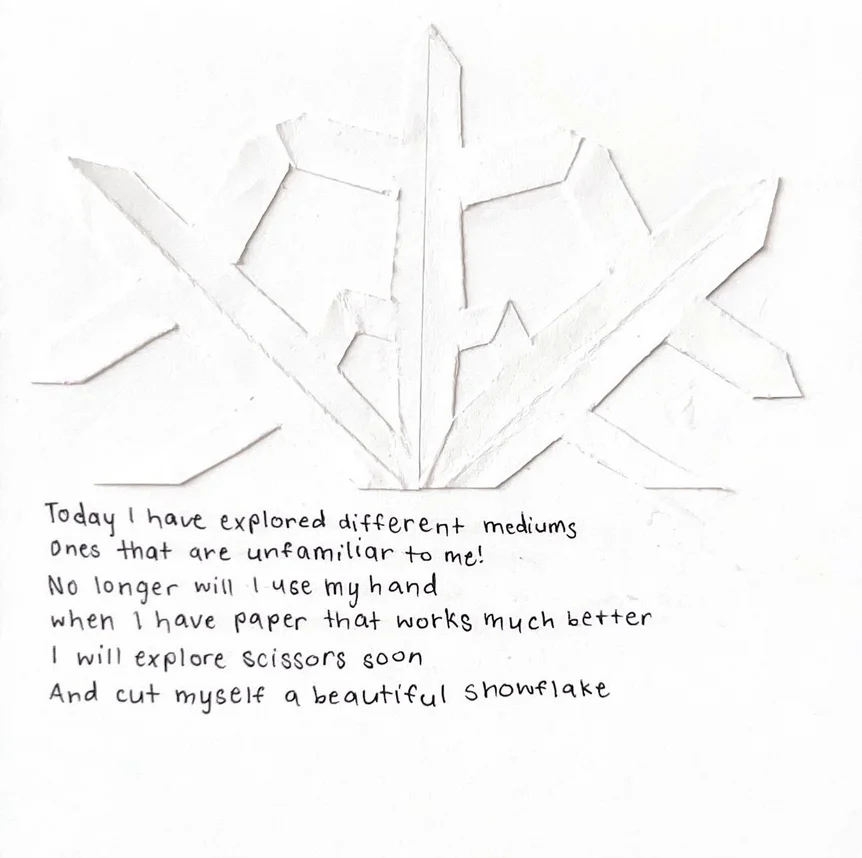 Today I have explored different mediums
Ones that are unfamiliar to me!
No longer will I use my hand
when I have paper that works much better
I will explore scissors soon
And cut myself a beautiful snowflake